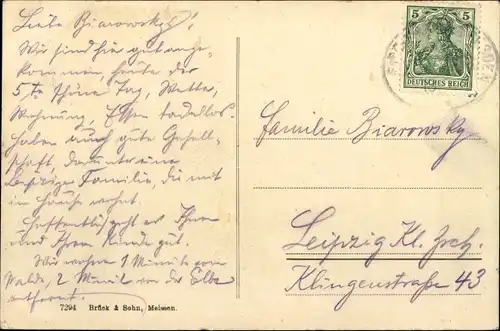 Liebe Biarowskys!
Wir sind hier gut ange-
kommen, heute der
5te schöne Tag, Wetter,
Wohnung, Essen tadellos.
haben auch gute Gesell-
schaft, darunter eine
Leipziger Familie, die mit
im Hause wohnt.
Hoffentlich geht es Ihnen
und Ihrem Kinde gut.
Wir wohnen 1 Minute vom
Walde, 2 Minut. von der Elbe
entfernt.
7294 Brück & Sohn, Meissen.
5 5
DEUTSCHES REICH
Familie Biarowsky
Leipzig Kl. Zsch.
Klingenstraße 43